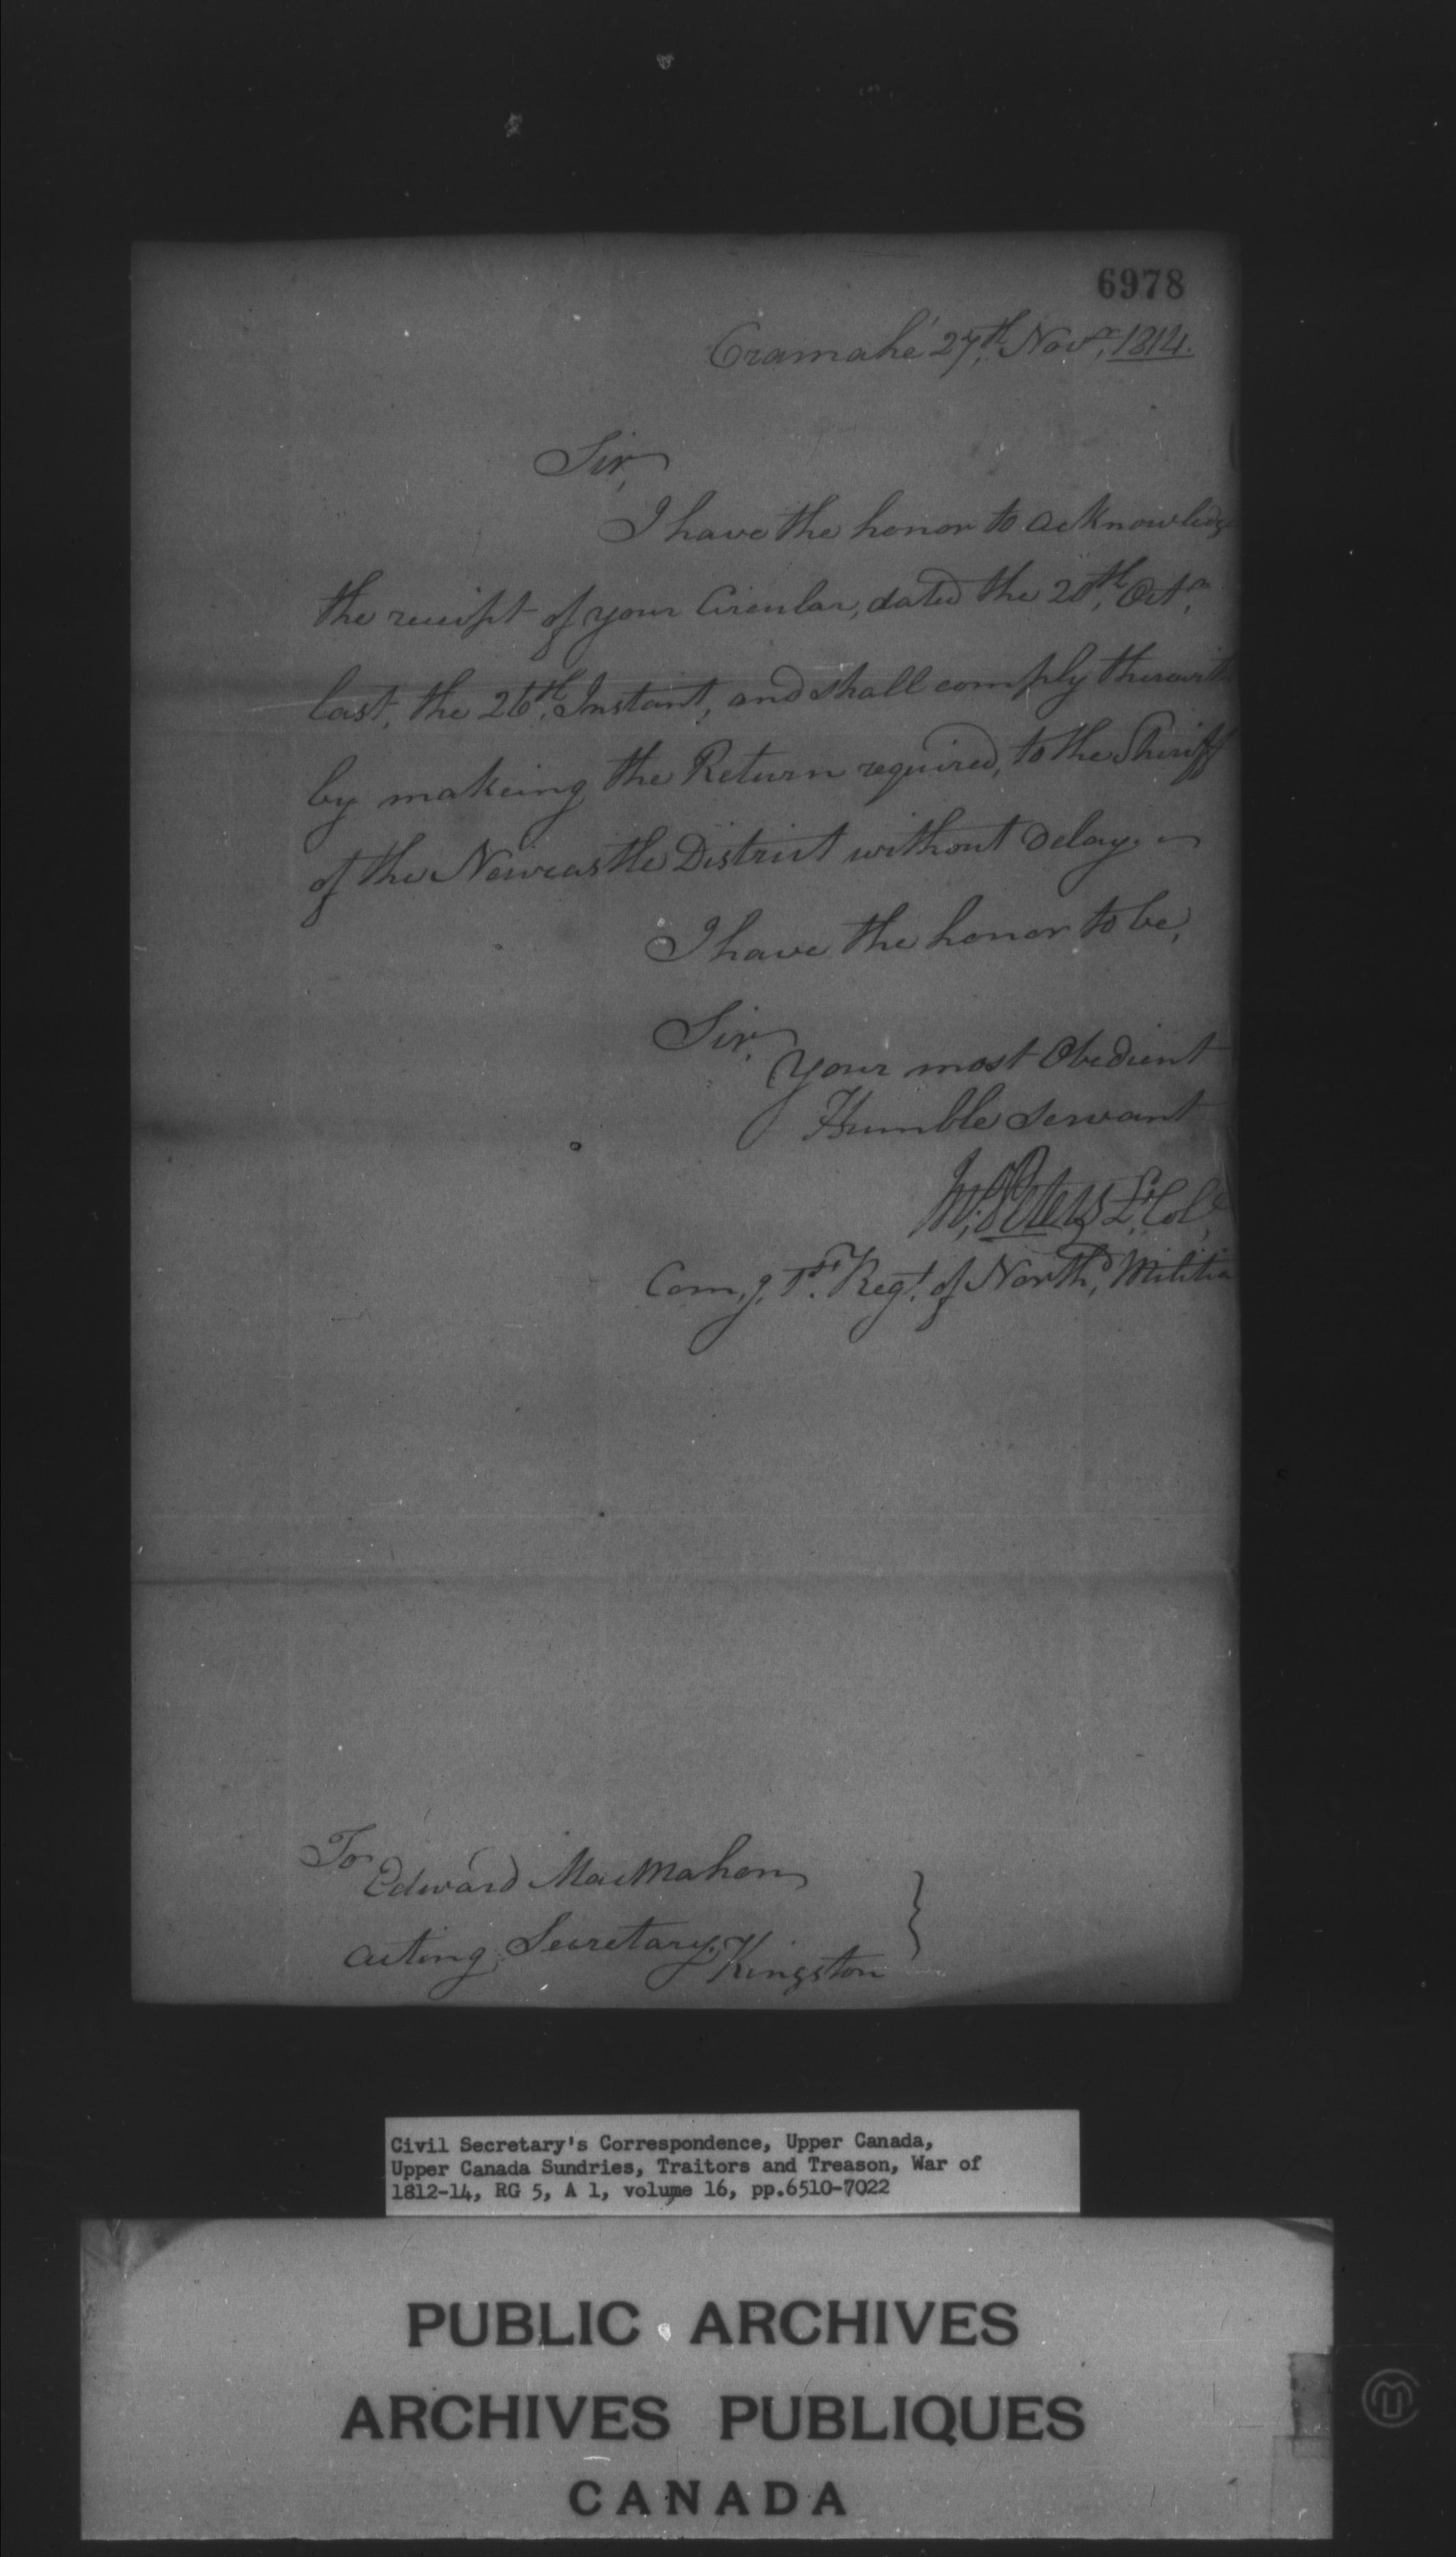 6978
Cramahé 27th. Novr. 1814.
Sir,
I have the honor to acknowledge
the receipt of your Circular, dated the 20th. Octr.
last, the 26th. Instant, and shall comply therewith
by makeing the Return required, to the Sheriff
of the Newcastle District without delay. —
I have the honor to be,
Sir,
Your most Obedient
Humble Servant
W. Peters Lt. Col.
Com,g, 1st. Regt. of North,d Militia
To
Edward MacMahon
acting Secretary, Kingston }
Civil Secretary's Correspondence, Upper Canada,
Upper Canada Sundries, Traitors and Treason, War of
1812-14, RG 5, A 1, volume 16, pp.6510-7022
PUBLIC ARCHIVES
ARCHIVES PUBLIQUES
CANADA